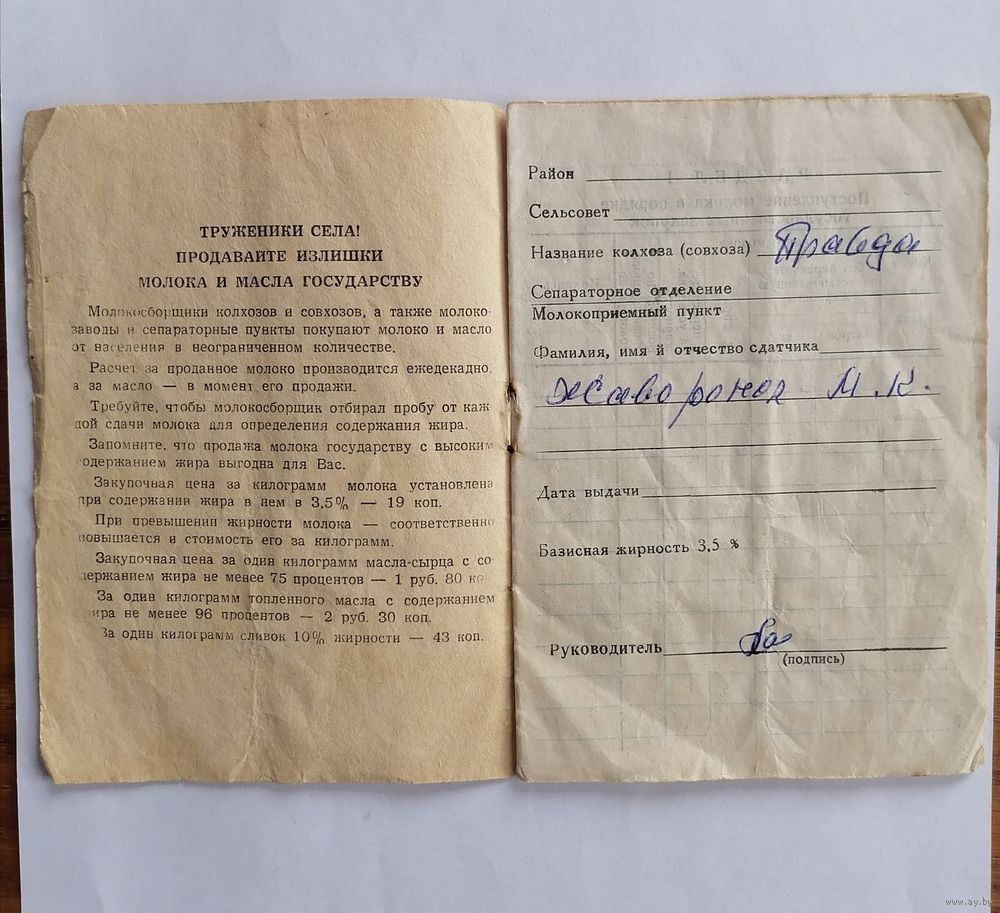 ТРУЖЕНИКИ СЕЛА!
ПРОДАВАЙТЕ ИЗЛИШКИ
МОЛОКА И МАСЛА ГОСУДАРСТВУ
Молокосборщики колхозов и совхозов, а также молоко-
заводы и сепараторные пункты покупают молоко и масло
от населения в неограниченном количестве.
Расчет за проданное молоко производится ежедекадно,
а за масло — в момент его продажи.
Требуйте, чтобы молокосборщик отбирал пробу от каж
дой сдачи молока для определения содержания жира.
Запомните, что продажа молока государству с высоким
содержанием жира выгодна для Вас.
Закупочная цена за килограмм молока установлена
при содержании жира в нем в 3,5% — 19 коп.
При превышении жирности молока — соответственно
повышается и стоимость его за килограмм.
Закупочная цена за один килограмм масла-сырца с со-
держанием жира не менее 75 процентов — 1 руб. 80 ко
За один килограмм топленного масла с содержанием
жира не менее 96 процентов — 2 руб. 30 коп.
За один килограмм сливок 10% жирности — 43 коп.
Район
Сельсовет
Название колхоза (совхоза) Правда
Сепараторное отделение
Молокоприемный пункт
Фамилия, имя й отчество сдатчика
М.К.
Дата выдачи
Базисная жирность 3,5 %
Руководитель
(подпись)
www.ay.by